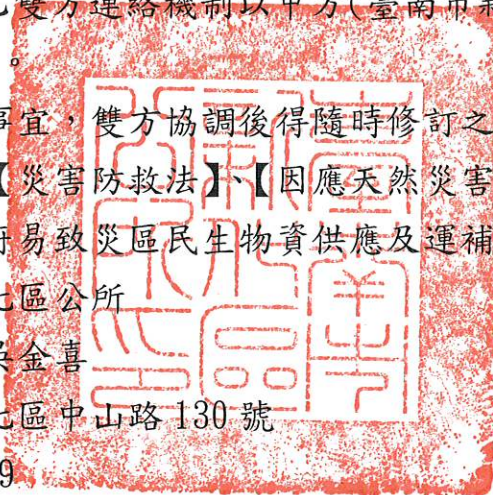 雙方連絡機制以甲方(臺南市新
。
事宜，雙方協調後得隨時修訂之
【災害防救法】、【因應天然災害
府易致災區民生物資供應及運補
化區公所
吳金喜
化區中山路130號
9